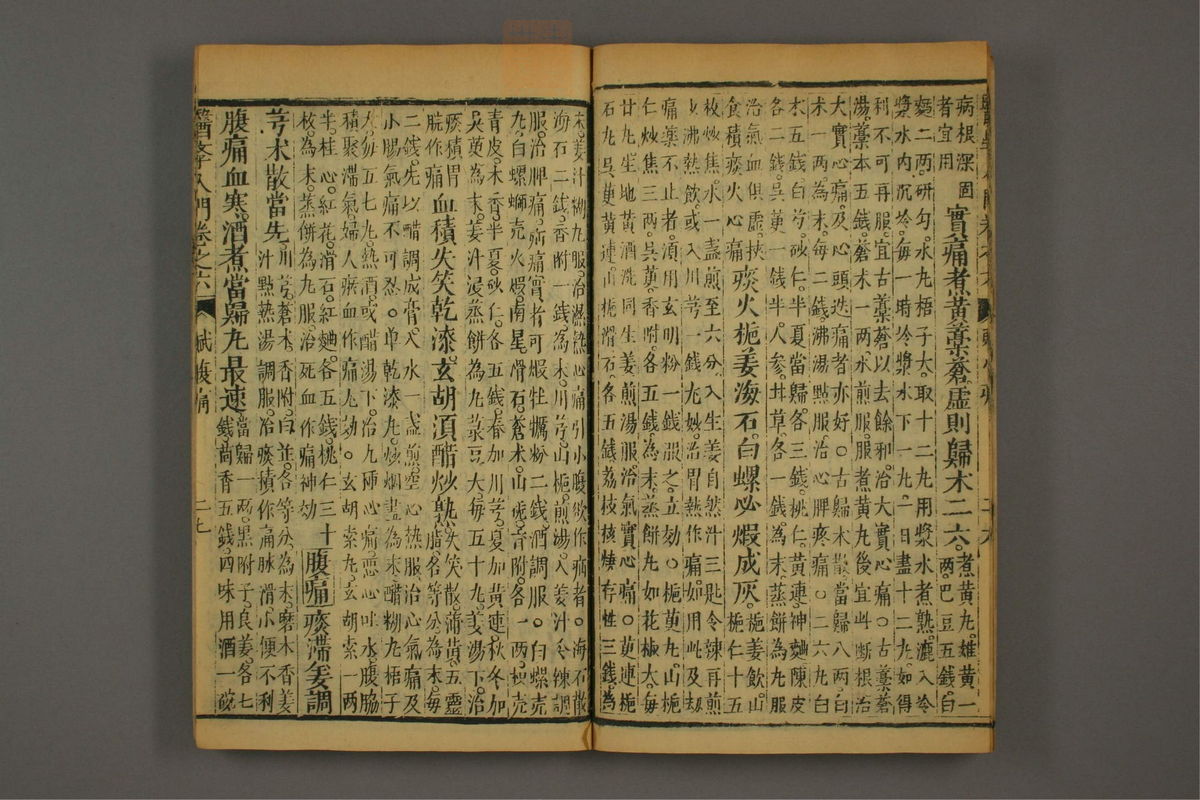 病根深固
者宜用
實痛煮黃藁蒼虛則歸木二六
煮黃丸雄黃一
兩巴豆五錢白
麪二兩研勻水丸梧子大取十二丸用漿水煮熟漉入冷
漿水內沉冷每一時冷漿水下一丸一日盡十二丸如得
利不可再服宜古藁蒼以去餘邪治大實心痛○古藁蒼
湯藁本五錢蒼术一兩水煎服服煮黃丸後宜此斷根治
大實心痛及心頭迭痛者亦好○古歸术散當歸八兩白
术一兩為末每二錢沸湯點服治心脾疼痛○二六丸白
木五錢白芍砂仁半夏當歸各三錢桃仁黃連神麯陳皮
各二錢吳萸一錢半人參甘草各一錢為末蒸餅為丸服
治氣血俱虛挾
食積痰火心痛
痰火梔姜海石白螺必煆成灰
梔姜飲山
梔仁十五
枚炒焦水一盞煎至六分入生姜自然汁三匙令辣再煎
以沸熱飲或入川芎一錢尤妙治胃熱作痛如用此及劫
痛藥不止者須用玄明粉一錢服之立劾○梔萸丸山梔
仁炒焦三兩吳萸香附各五錢為末蒸餅丸如花椒大每
廿九生地黃酒洗同生姜煎湯服治氣實心痛○萸連梔
石丸吳萸黃連山梔滑石各五錢荔枝核燒存性三錢為
末姜汁糊丸服治濕熱心痛引小腹欲作疝者○海石散
海石二錢香附一錢為末川芎山梔煎湯入姜汁令辣調
服治脾痛疝痛實者可煆牡蠣粉二錢酒調服○白螺壳
丸白螺螄壳火煆南星滑石蒼术山梔香附各一兩枳壳
青皮木香半夏砂仁各五錢春加川芎夏加黃連秋冬加
吳萸為末姜汁浸蒸餅為丸菉豆大每五十丸姜湯下治
痰積胃
脘作痛
血積失笑乾漆玄胡須醋炒熟
失笑散蒲黃五靈
脂各等分為末每
二錢先以醋調成膏入水一盞煎空心熱服治心氣痛及
小腸氣痛不可忍○单乾漆丸炒烟盡為末醋糊丸梧子
大每五七丸熱酒或醋湯下治九種心痛惡心吐水腹脇
積聚滯氣婦人痳血作痛尤劾○玄胡索丸玄胡索一兩
半桂心紅花滑石紅麯各五錢桃仁三十
枚為末蒸餅為丸服治死血作痛神劫
腹痛痰滯姜調
芎术散當先
川芎蒼术香附白芷各等分為末磨木香姜
汁點熱湯調服治痰積作痛脉滑小便不利
腹痛血寒酒煮當歸丸最速
當歸一兩黑附子良姜各七
錢茴香五錢四味用酒一碗
醫學入門卷之六
賦
腹痛
二七